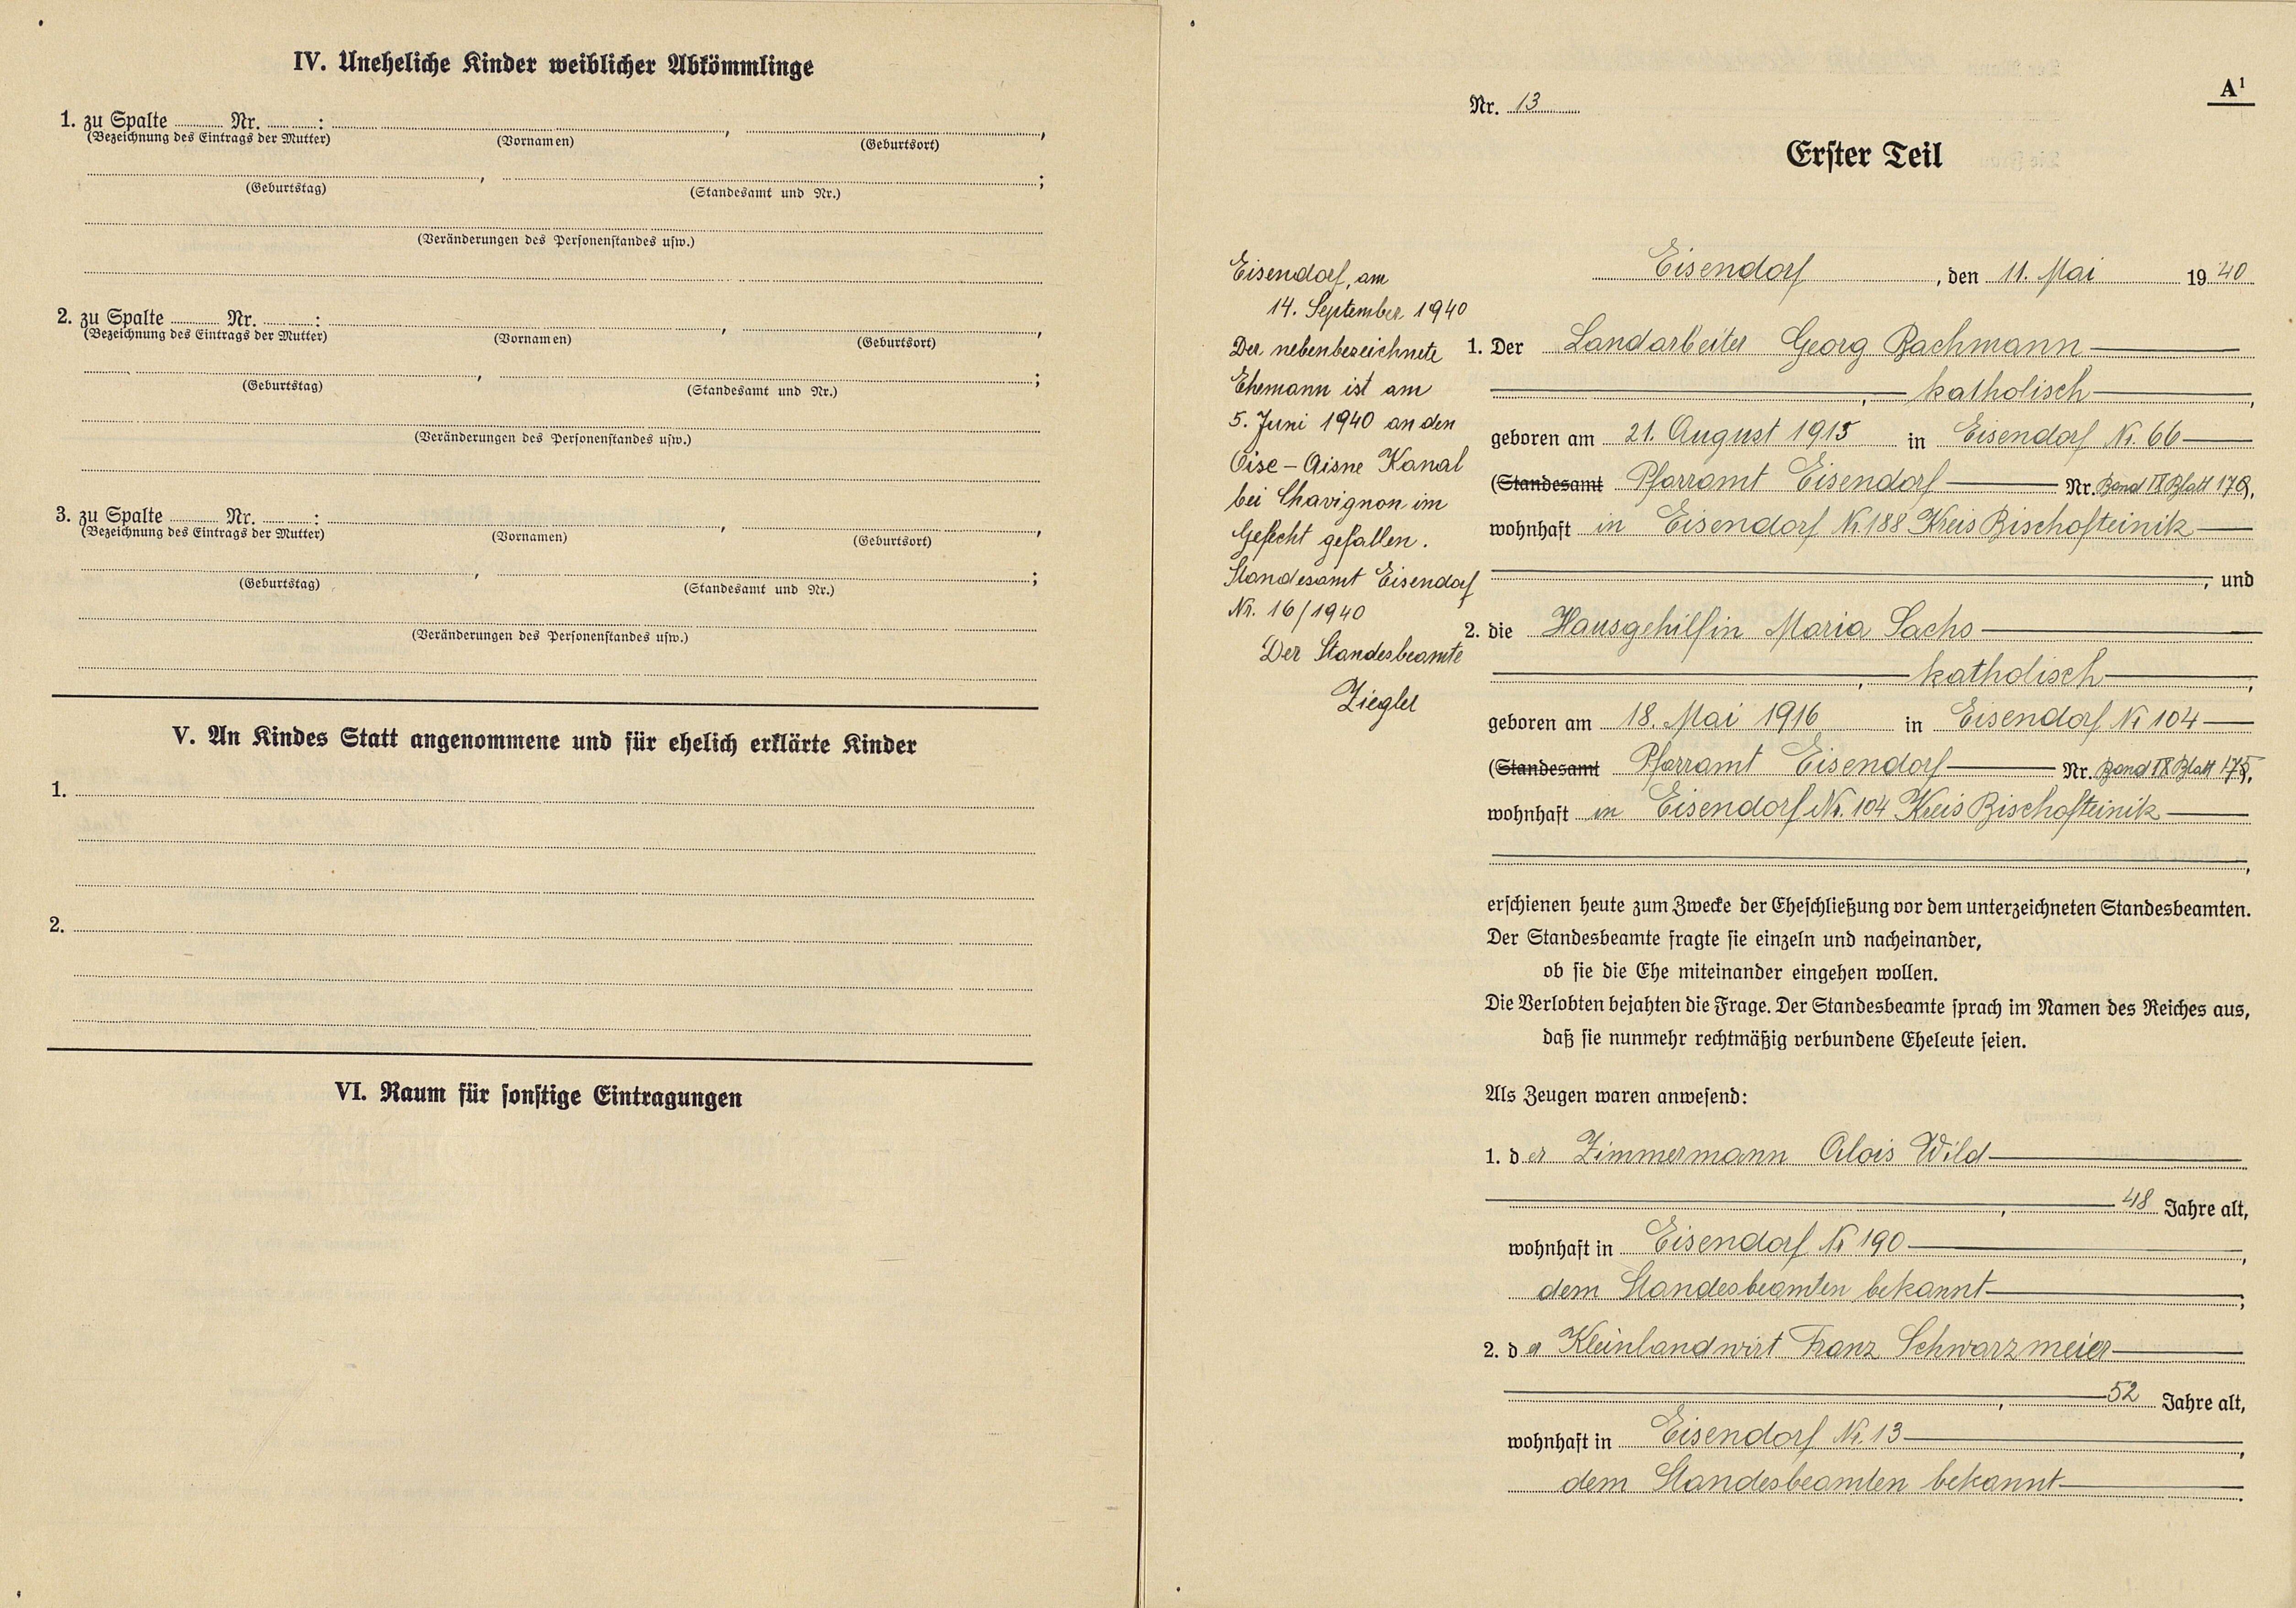 IV. Uneheliche Kinder weiblicher Abkömmlinge
1. zu Spalte ........ Nr. ........ : ........ , ........ ,
(Bezeichnung des Eintrags der Mutter) (Vornamen) (Geburtsort)
........ , ........ ;
(Geburtstag) (Standesamt und Nr.)
(Veränderungen des Personenstandes usw.)
2. zu Spalte ........ Nr. ........ : ........ , ........ ,
(Bezeichnung des Eintrags der Mutter) (Vornamen) (Geburtsort)
........ , ........ ;
(Geburtstag) (Standesamt und Nr.)
(Veränderungen des Personenstandes usw.)
3. zu Spalte ........ Nr. ........ : ........ , ........ ,
(Bezeichnung des Eintrags der Mutter) (Vornamen) (Geburtsort)
........ , ........ ;
(Geburtstag) (Standesamt und Nr.)
(Veränderungen des Personenstandes usw.)
V. An Kindes Statt angenommene und für ehelich erklärte Kinder
1.
2.
VI. Raum für sonstige Eintragungen
A¹
Nr. 13
Erster Teil
Eisendorf, am
14. September 1940
Der nebenbezeichnete
Ehemann ist am
5. Juni 1940 an den
Oise-Aisne Kanal
bei Chavignon im
Gefecht gefallen.
Standesamt Eisendorf
Nr. 16/1940
Der Standesbeamte
Ziegler
Eisendorf, den 11. Mai 1940
1. Der Landarbeiter Georg Bachmann
, katholisch,
geboren am 21. August 1915 in Eisendorf Nr. 66
(Standesamt Pfarramt Eisendorf Nr. Band IX Blatt 170),
wohnhaft in Eisendorf Nr. 188 Kreis Bischofteinitz
, und
2. die Hausgehilfin Maria Sachs
, katholisch,
geboren am 18. Mai 1916 in Eisendorf Nr 104
(Standesamt Pfarramt Eisendorf Nr. Band IX Blatt 175),
wohnhaft in Eisendorf Nr. 104 Kreis Bischofteinitz
,
erschienen heute zum Zwecke der Eheschließung vor dem unterzeichneten Standesbeamten.
Der Standesbeamte fragte sie einzeln und nacheinander,
ob sie die Ehe miteinander eingehen wollen.
Die Verlobten bejahten die Frage. Der Standesbeamte sprach im Namen des Reiches aus,
daß sie nunmehr rechtmäßig verbundene Eheleute seien.
Als Zeugen waren anwesend:
1. der Zimmermann Alois Wild
, 48 Jahre alt,
wohnhaft in Eisendorf Nr 190,
dem Standesbeamten bekannt;
2. der Kleinlandwirt Franz Schwarzmeier
, 52 Jahre alt,
wohnhaft in Eisendorf Nr. 13,
dem Standesbeamten bekannt.